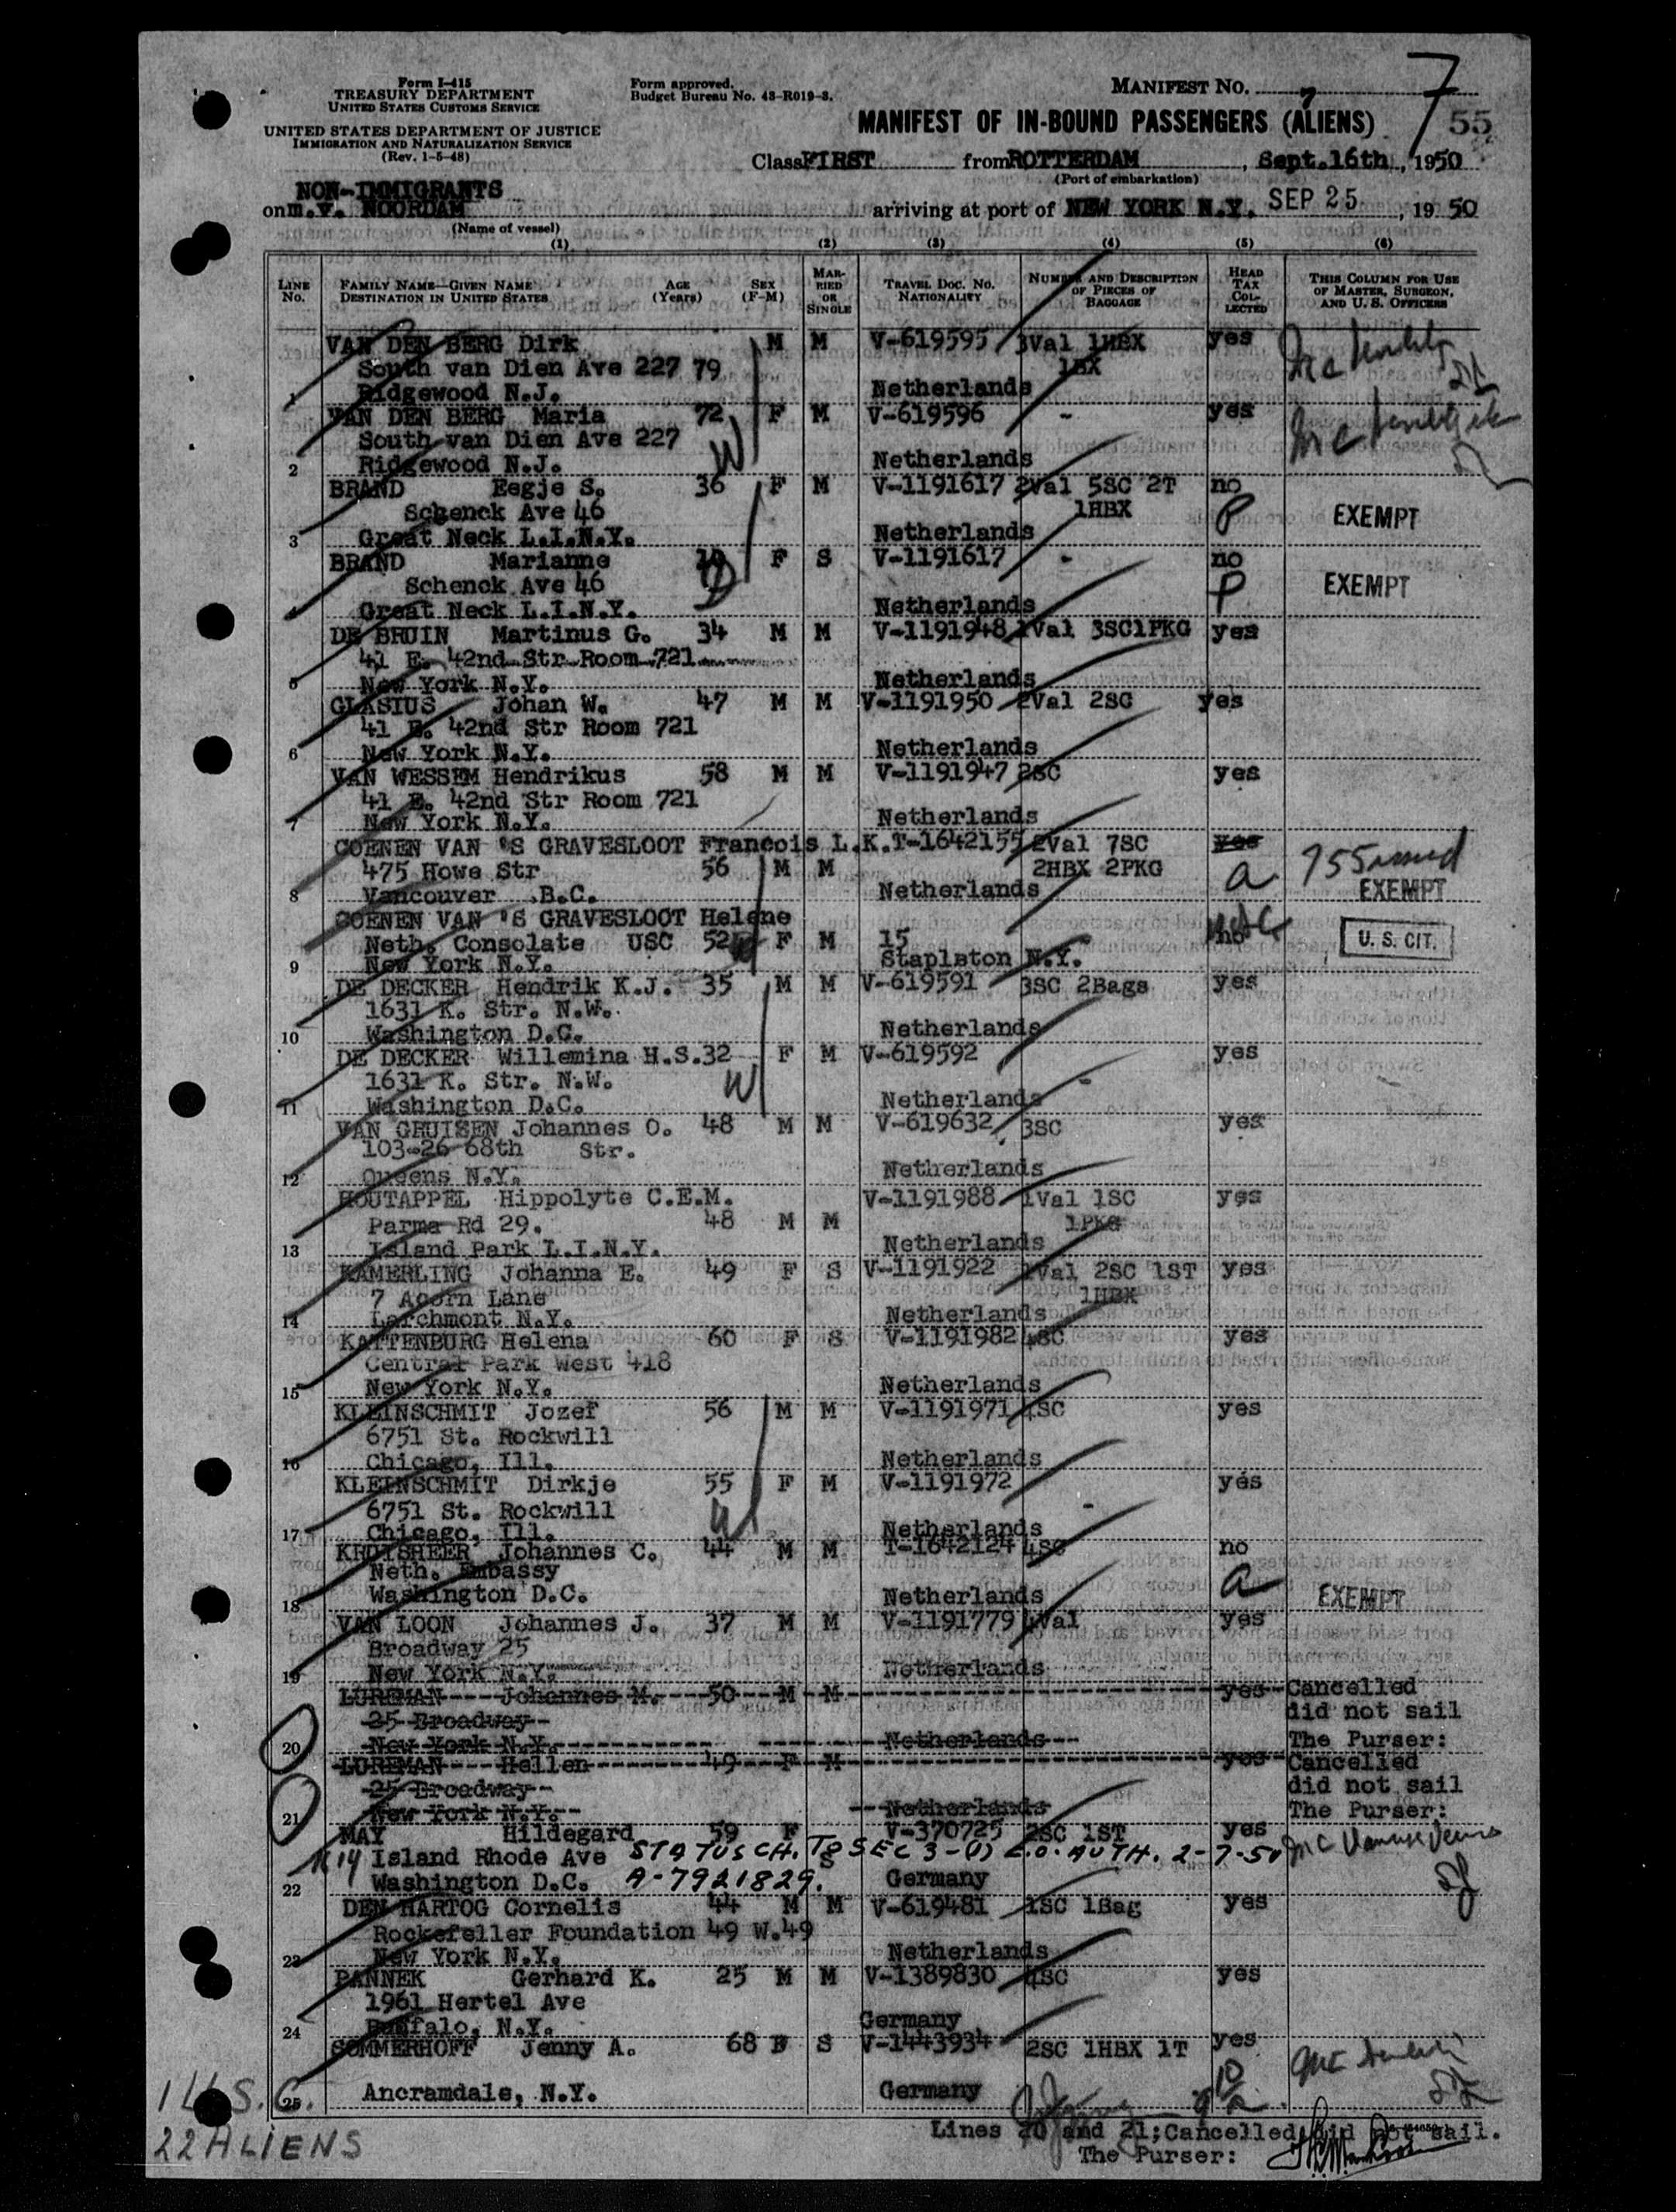 Form I-415
TREASURY DEPARTMENT
UNITED STATES CUSTOMS SERVICE
UNITED STATES DEPARTMENT OF JUSTICE
IMMIGRATION AND NATURALIZATION SERVICE
(Rev. 1-5-48)
Form approved.
Budget Bureau No. 43-R019-3.
MANIFEST NO. 7
7
55
MANIFEST OF IN-BOUND PASSENGERS (ALIENS)
Class FIRST from ROTTERDAM, Sept.16th, 1950
(Port of embarkation)
NON-IMMIGRANTS
on m.v. NOORDAM arriving at port of NEW YORK N.Y. SEP 25, 1950
(Name of vessel)
(1) (2) (3) (4) (5) (6)
LINE No. FAMILY NAME—GIVEN NAME DESTINATION IN UNITED STATES AGE (Years) SEX (F-M) MARRIED OR SINGLE TRAVEL DOC. NO. NATIONALITY NUMBER AND DESCRIPTION OF PIECES OF BAGGAGE HEAD TAX COLLECTED THIS COLUMN FOR USE OF MASTER, SURGEON, AND U. S. OFFICERS
VAN DEN BERG Dirk M M V-619595 3Val 1HBX yes
South van Dien Ave 227 79 1BX
1 Ridgewood N.J. Netherlands
VAN DEN BERG Maria 72 F M V-619596 - yes
South van Dien Ave 227 W
2 Ridgewood N.J. Netherlands
BRAND Eegje S. 36 F M V-1191617 2Val 5SC 2T no
Schenck Ave 46 1HBX P EXEMPT
3 Great Neck L.I.N.Y. Netherlands
BRAND Marianne F S V-1191617 - no
Schenck Ave 46 D P EXEMPT
4 Great Neck L.I.N.Y. Netherlands
DE BRUIN Martinus G. 34 M M V-1191948 1Val 3SC1PKG yes
41 E. 42nd Str Room 721
5 New York N.Y. Netherlands
GLASIUS Johan W. 47 M M V-1191950 2Val 2SC yes
41 E. 42nd Str Room 721
6 New York N.Y. Netherlands
VAN WESSEM Hendrikus 58 M M V-1191947 2SC yes
41 E. 42nd Str Room 721
7 New York N.Y. Netherlands
COENEN VAN 'S GRAVESLOOT Francois L.K.T-1642155 2Val 7SC yes
475 Howe Str 56 M M 2HBX 2PKG a 755 issued
8 Vancouver B.C. Netherlands EXEMPT
COENEN VAN 'S GRAVESLOOT Helene
Neth. Consolate USC 52 F M 15 no U. S. CIT.
9 New York N.Y. Stapleton N.Y.
DE DECKER Hendrik K.J. 35 M M V-619591 3SC 2Bags yes
1631 K. Str. N.W.
10 Washington D.C. Netherlands
DE DECKER Willemina H.S.32 F M V-619592 yes
1631 K. Str. N.W. W -
11 Washington D.C. Netherlands
VAN GRUISEN Johannes O. 48 M M V-619632 3SC yes
103-26 68th Str.
12 Queens N.Y. Netherlands
HOUTAPPEL Hippolyte C.E.M. V-1191988 1Val 1SC yes
Parma Rd 29. 48 M M 1PKG
13 Island Park L.I.N.Y. Netherlands
KAMERLING Johanna E. 49 F S V-1191922 1Val 2SC 1ST yes
7 Acorn Lane 1HBX
14 Larchmont N.Y. Netherlands
KATTENBURG Helena 60 F S V-1191982 4SC yes
Central Park West 418
15 New York N.Y. Netherlands
KLEINSCHMIT Jozef 56 M M V-1191971 4SC yes
6751 St. Rockwill
16 Chicago, Ill. Netherlands
KLEINSCHMIT Dirkje 55 F M V-1191972 yes
6751 St. Rockwill W -
17 Chicago, Ill. Netherlands
KRUISHEER Johannes C. 44 M M T-1642124 4SC no
Neth. Embassy a
18 Washington D.C. Netherlands EXEMPT
VAN LOON Johannes J. 37 M M V-1191779 4Val yes
Broadway 25
19 New York N.Y. Netherlands
LUREMAN Johannes M. 50 M M yes Cancelled
25 Broadway did not sail
20 New York N.Y. Netherlands The Purser:
LUREMAN Hellen 49 F M yes Cancelled
25 Broadway did not sail
21 New York N.Y. Netherlands The Purser:
MAY Hildegard 59 F V-370725 2SC 1ST yes
1614 Island Rhode Ave S STATUS CH. TO SEC 3-(1) C.O. AUTH. 2-7-51
22 Washington D.C. A-7921829. Germany
DEN HARTOG Cornelis 44 M M V-619481 1SC 1Bag yes
Rockefeller Foundation 49 W.49
23 New York N.Y. Netherlands
PANNEK Gerhard K. 25 M M V-1389830 4SC yes
1961 Hertel Ave
24 Buffalo, N.Y. Germany
SOMMERHOFF Jenny A. 68 F S V-1443934 2SC 1HBX 1T yes
25 Ancramdale, N.Y. Germany
1 U.S.C.
22 ALIENS
Lines 20 and 21;Cancelled did not sail.
The Purser: